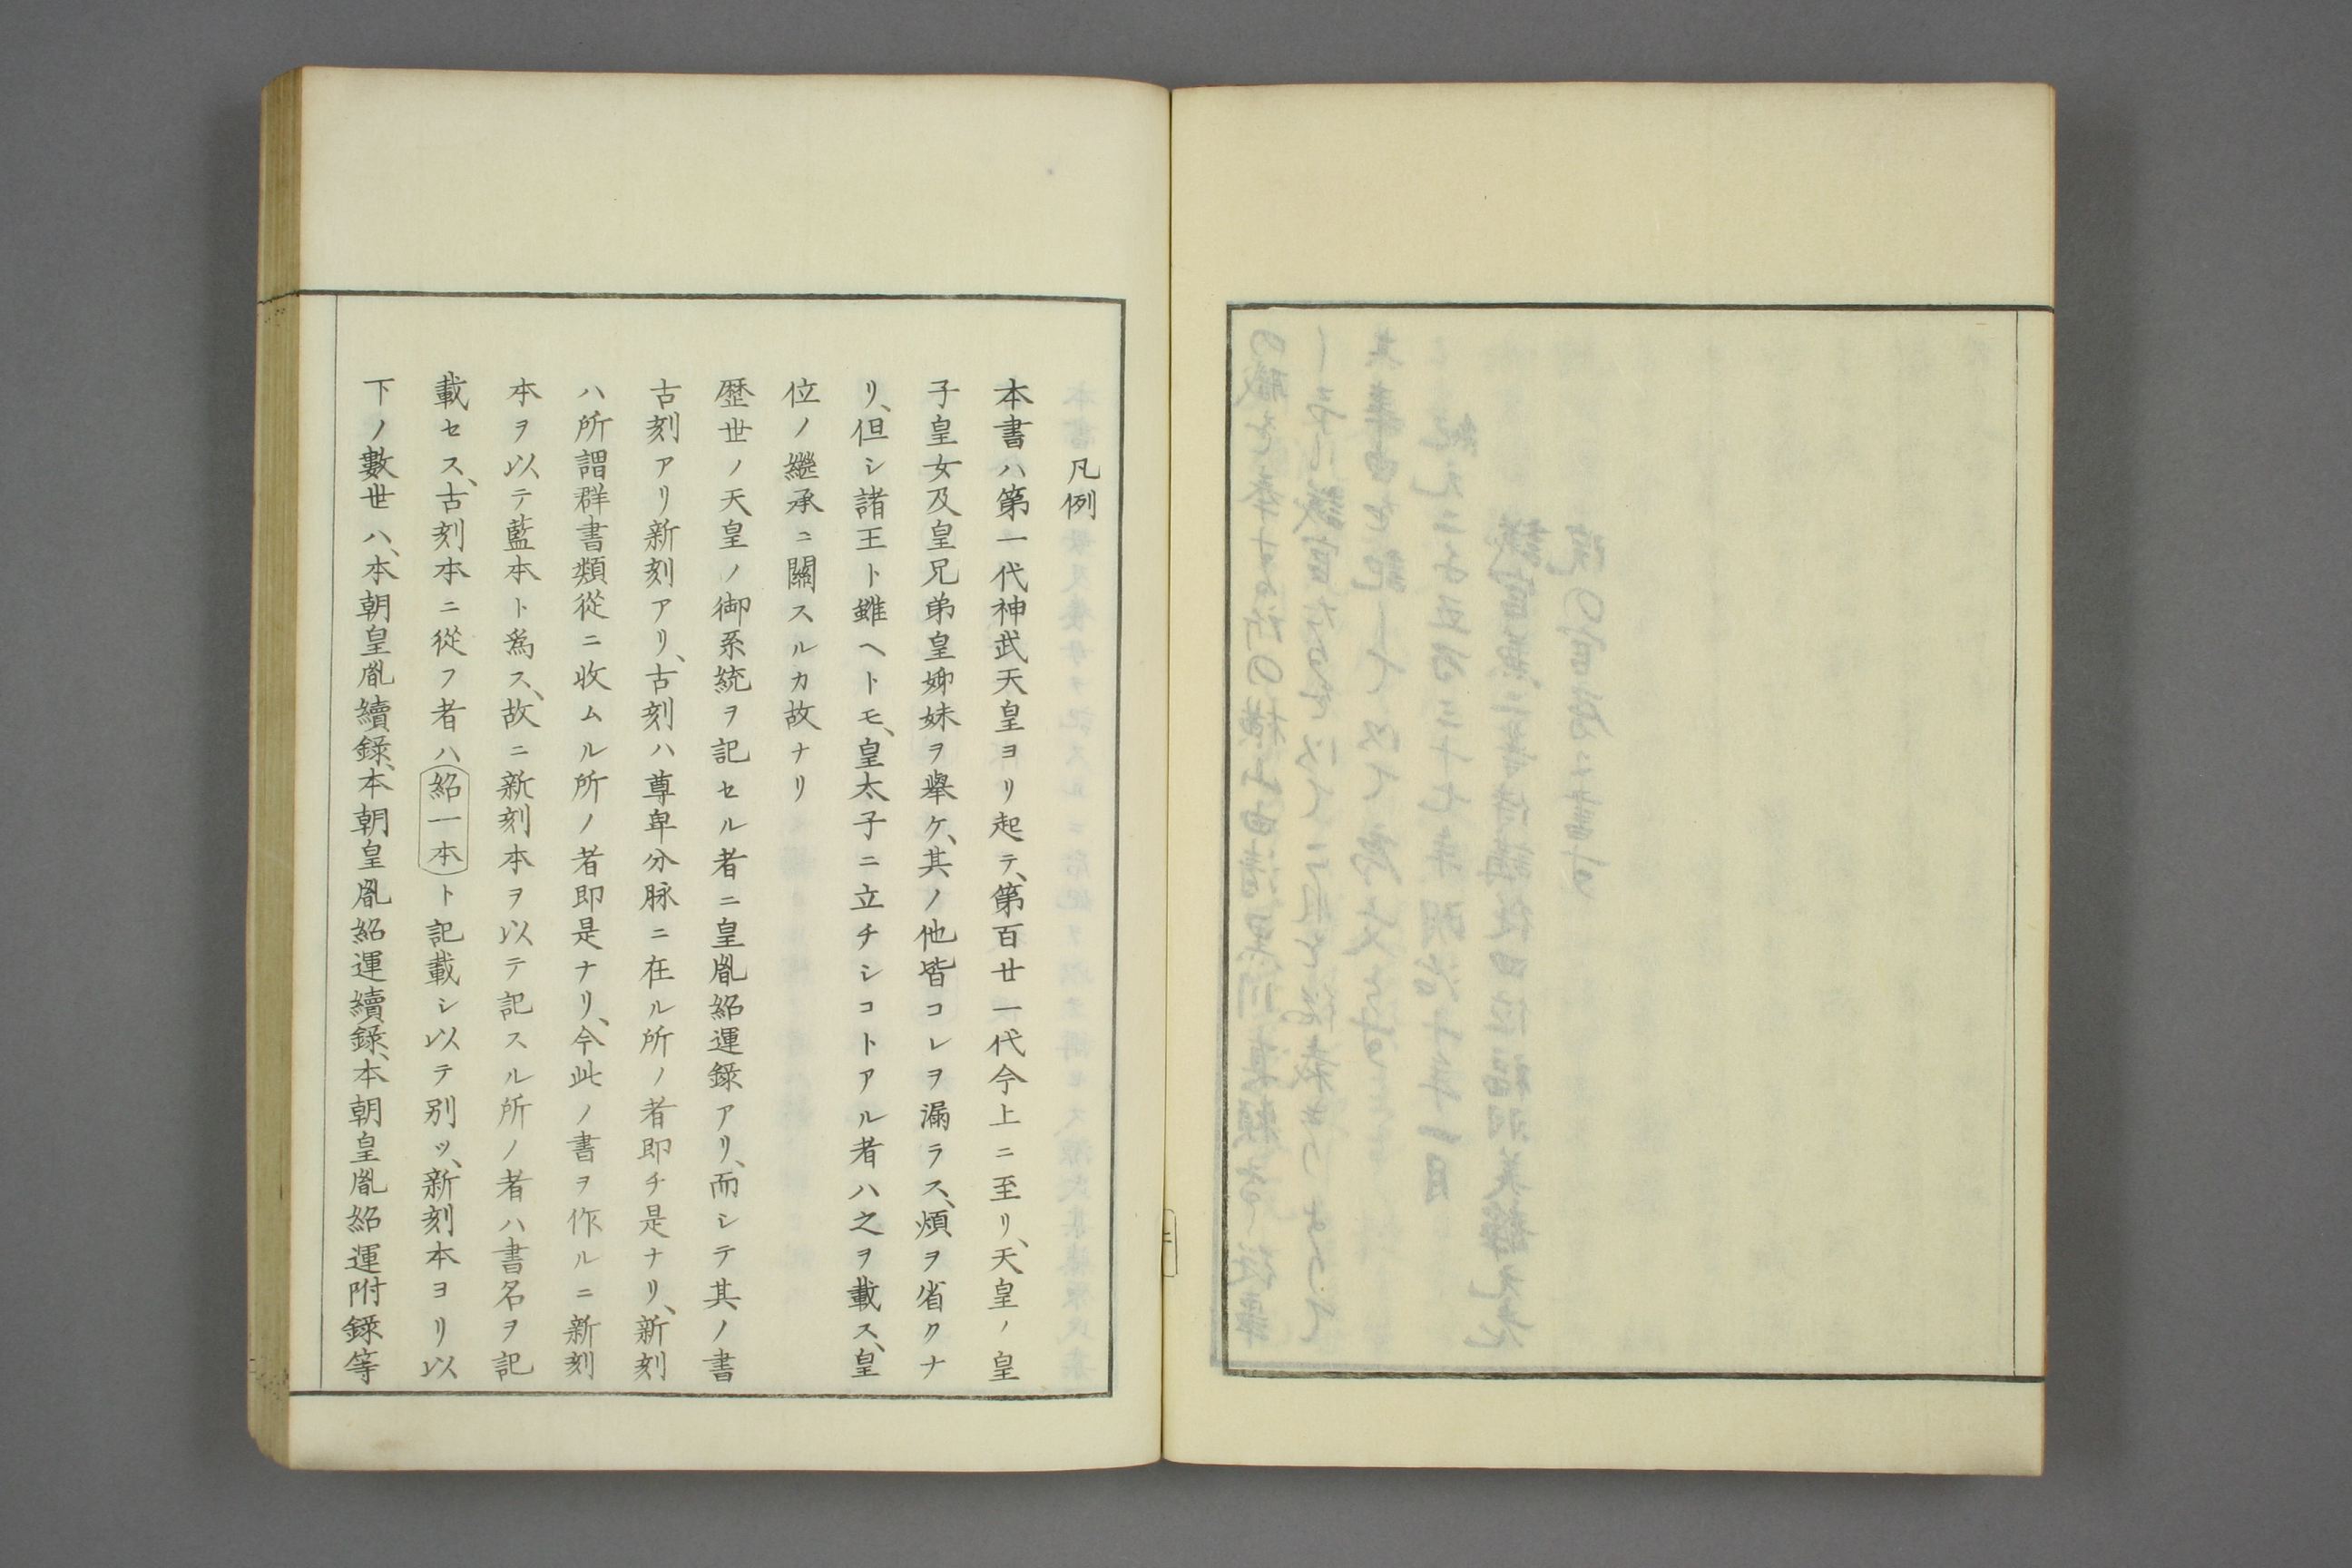 凡例
本書ハ第一代神武天皇ヨリ起テ、第百廿一代今上ニ至リ、天皇ノ皇
子皇女及皇兄弟皇姉妹ヲ擧ケ、其ノ他皆コレヲ漏ラス、煩ヲ省クナ
リ、但シ諸王ト雖ヘトモ、皇太子ニ立チシコトアル者ハ之ヲ載ス、皇
位ノ繼承ニ關スルカ故ナリ
歴世ノ天皇ノ御系統ヲ記セル者ニ皇胤紹運錄アリ、而シテ其ノ書
古刻アリ新刻アリ、古刻ハ尊卑分脉ニ在ル所ノ者即チ是ナリ、新刻
ハ所謂群書類從ニ收ムル所ノ者即是ナリ、今此ノ書ヲ作ルニ新刻
本ヲ以テ藍本ト爲ス、故ニ新刻本ヲ以テ記スル所ノ者ハ書名ヲ記
載セス、古刻本ニ從フ者ハ紹一本ト記載シ以テ別ッ、新刻本ヨリ以
下ノ數世ハ、本朝皇胤續錄、本朝皇胤紹運續錄、本朝皇胤紹運附錄等